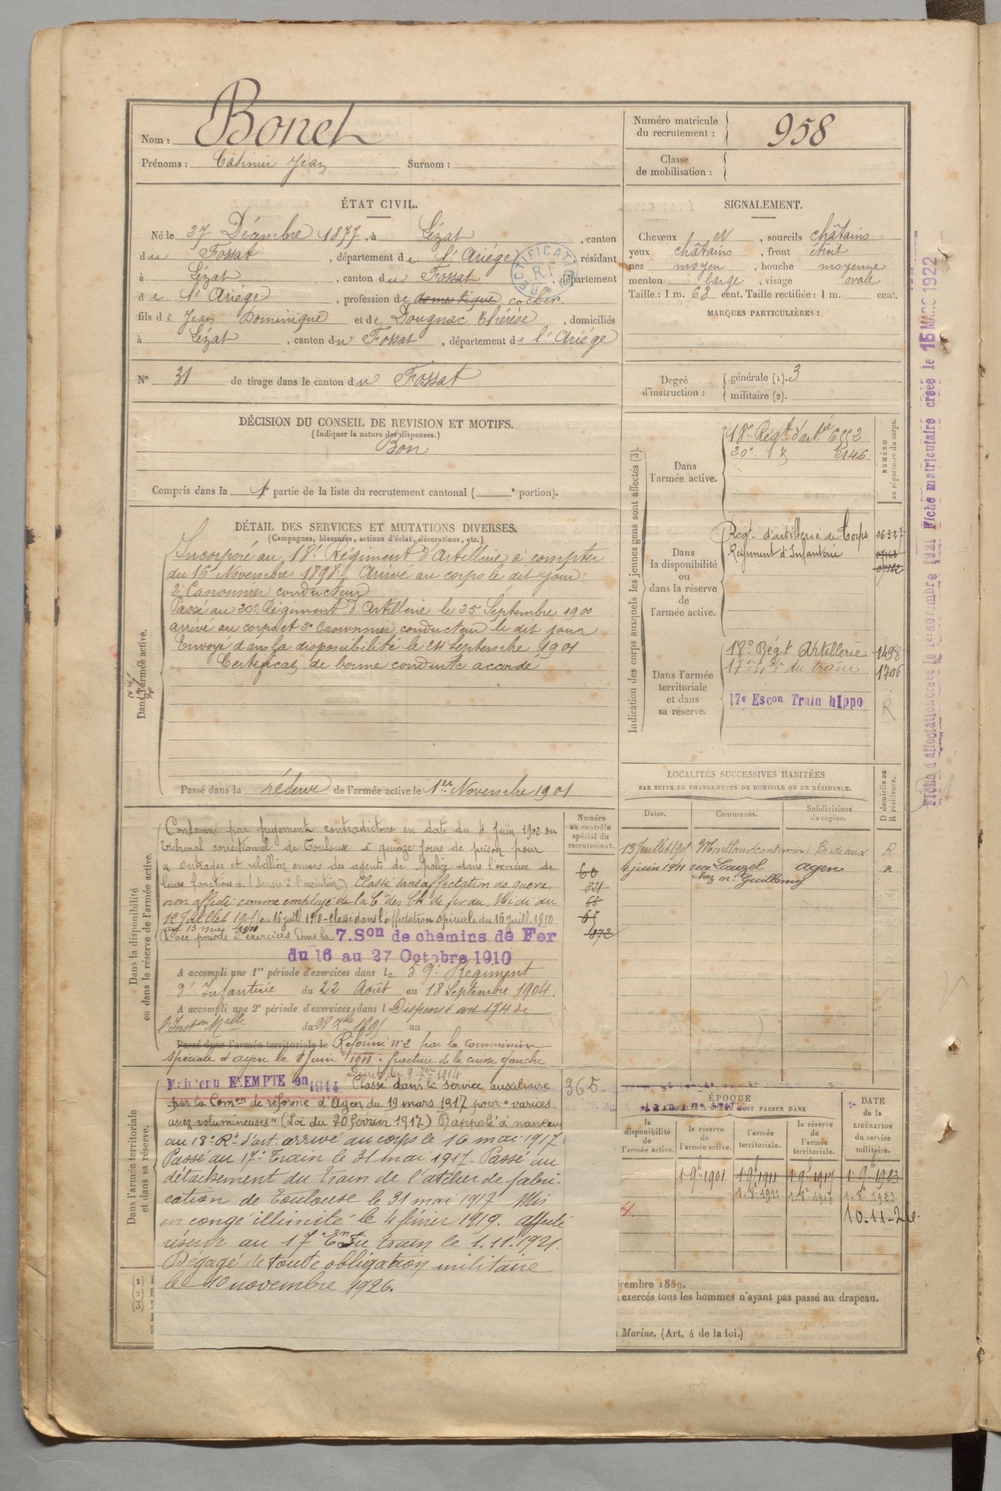 Nom : Bonet
Prénoms : Casimir Jean Surnom :
Numéro matricule du recrutement : 958
Classe de mobilisation :
ÉTAT CIVIL.
Né le 27 Décembre 1877, à Lézat, canton
du Fossat, département de l'Ariége, résidant
à Lézat, canton du Fossat, département
de l'Ariége, profession de domestique cocher
fils de Jean Dominique et de Dougnac Thérèse, domiciliés
à Lézat, canton du Fossat, département de l'Ariége
RECTIFICATION
R.I.
N° 31 de tirage dans le canton du Fossat
SIGNALEMENT.
Cheveux et, sourcils châtains
yeux châtains, front étroit
nez moyen, bouche moyenne
menton large, visage ovale
Taille : 1 m. 62 cent. Taille rectifiée : 1 m. cent.
MARQUES PARTICULIÈRES :
Degré d'instruction : générale (1). 3
militaire (2).
DÉCISION DU CONSEIL DE REVISION ET MOTIFS.
(Indiquer la nature des dispenses.)
Bon
Compris dans la 1e partie de la liste du recrutement cantonal ( e portion).
DÉTAIL DES SERVICES ET MUTATIONS DIVERSES.
(Campagnes, blessures, actions d'éclat, décorations, etc.)
Dans l'armée active.
Incorporé au 18e Régiment d'Artillerie, à compter
du 16 Novembre 1898. Arrivé au corps le dit jour
2e Canonnier conducteur
Passé au 20e Régiment d'Artillerie le 25 Septembre 1900
arrivé au corps et 2e Canonnier conducteur le dit jour
Envoyé dans la disponibilité le 24 septembre 1901
Certificat de bonne conduite accordé
Passé dans la réserve de l'armée active le 1er Novembre 1901
Indication des corps auxquels les jeunes gens sont affectés (3).
NUMÉRO au répertoire du corps.
Dans l'armée active.
18e Régt d'artie 6552
20e d° 3146
Dans la disponibilité ou dans la réserve de l'armée active.
Régt d'artillerie de Corps 06327
Régiment d'Infanterie
Dans l'armée territoriale et dans sa réserve.
18e Régt Artillerie 1498
17e du train 1706
17e Escon Train hippo R
LOCALITÉS SUCCESSIVES HABITÉES
PAR SUITE DE CHANGEMENTS DE DOMICILE OU DE RÉSIDENCE.
Dates. Communes. Subdivisions de région. D domicile ou R résidence.
13 Juillet 1901 Bordeaux R
4 juin 1911 Lauzel Agen R
chez Mr Guillemy
Dans la disponibilité ou dans la réserve de l'armée active.
Numéro au contrôle spécial du recrutement.
Condamné par jugement contradictoire en date du 4 Juin 1902 du
tribunal correctionnel de Toulouse à quinze jours de prison pour
outrages et rébellion envers des agents de police dans l'exercice de
leurs fonctions. (Sursis à l'exécution) Classé dans l'affectation de guerre,
non affecté comme employé de la Cie des Ch. de fer du Midi du
au 16 juill. 1910 - Classé dans l'affectation spéciale du 16 juill. 1910
période d'exercices dans la 7.Son de chemins de Fer
du 16 au 27 Octobre 1910
A accompli une 1re période d'exercices dans le 59e Régiment
d'Infanterie du 22 Août au 18 Septembre 1904.
A accompli une 2e période d'exercices dans l Dispensé art 174 de
l'Inston Melle du 28 Xbre 1891 au
Passé dans l'armée territoriale le Réformé n° 2 par la commission
spéciale d'Agen le 8 juin 1911 : fracture de la cuisse gauche
60
821
68
65
1872
Dans l'armée territoriale et dans sa réserve.
Maintenu EXEMPTÉ en 1914 Classé dans le service auxiliaire
par la Comon de réforme d'Agen du 19 mars 1917 pour "varices
assez volumineuses" (Loi du 20 février 1917) Rappelé à nouveau
au 18e Rt d'art. arrivé au corps le 16 mai 1917.
Passé au 17e Train le 31 mai 1917. Passé au
détachement du train de l'atelier de fabri-
cation de Toulouse le 31 mai 1917. Mis
en congé illimité le 4 février 1919. affecté
réserve au 17e Eon du train le 1.11.1921.
Dégagé de toute obligation militaire
le 10 novembre 1926.
365
ÉPOQUE
DOIT PASSER DANS
la disponibilité de l'armée active.
la réserve de l'armée active.
l'armée territoriale.
la réserve de l'armée territoriale.
DATE de la LIBÉRATION du service militaire.
1-9bre 1901 1-9bre 1911 1-9bre 1917 1-9bre 1923
10-11-26
cembre 1889.
exercés tous les hommes n'ayant pas passé au drapeau.
Marine. (Art. 4 de la loi.)
(1) (2) (3)
Fiche matriculaire créée le 15 MARS 1922